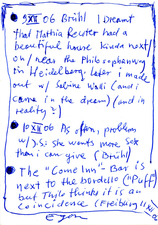 9 XII 06 Brühl I Dreamt
that Mathia Reuter had a
beautiful house kinda next/
on/near the Philosophenweg
in Heidelberg. Later i made
out w/ Sabine Walli (and i
came in the dream) (and in
reality?)
10 XII 06 As often, problem
w/ J.S.: she wants more sex
than i can give (Brühl)
The "Come Inn"-Bar is
next to the bordello ("Puff")
but Thilo thinks it is a
coincidence (Freiburg 11 XII 06